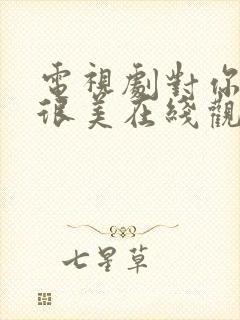 電視劇對你
很美在綫觀
七星草